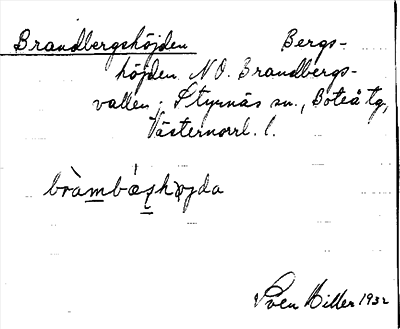 Brandbergshöjden Bergs-
höjden N.O. Brandbergs-
vallen; Styrnäs sn., Boteå tg,
Västernorrl. l.
bràmbæ̀şhøjda
Sven Hiller 1932